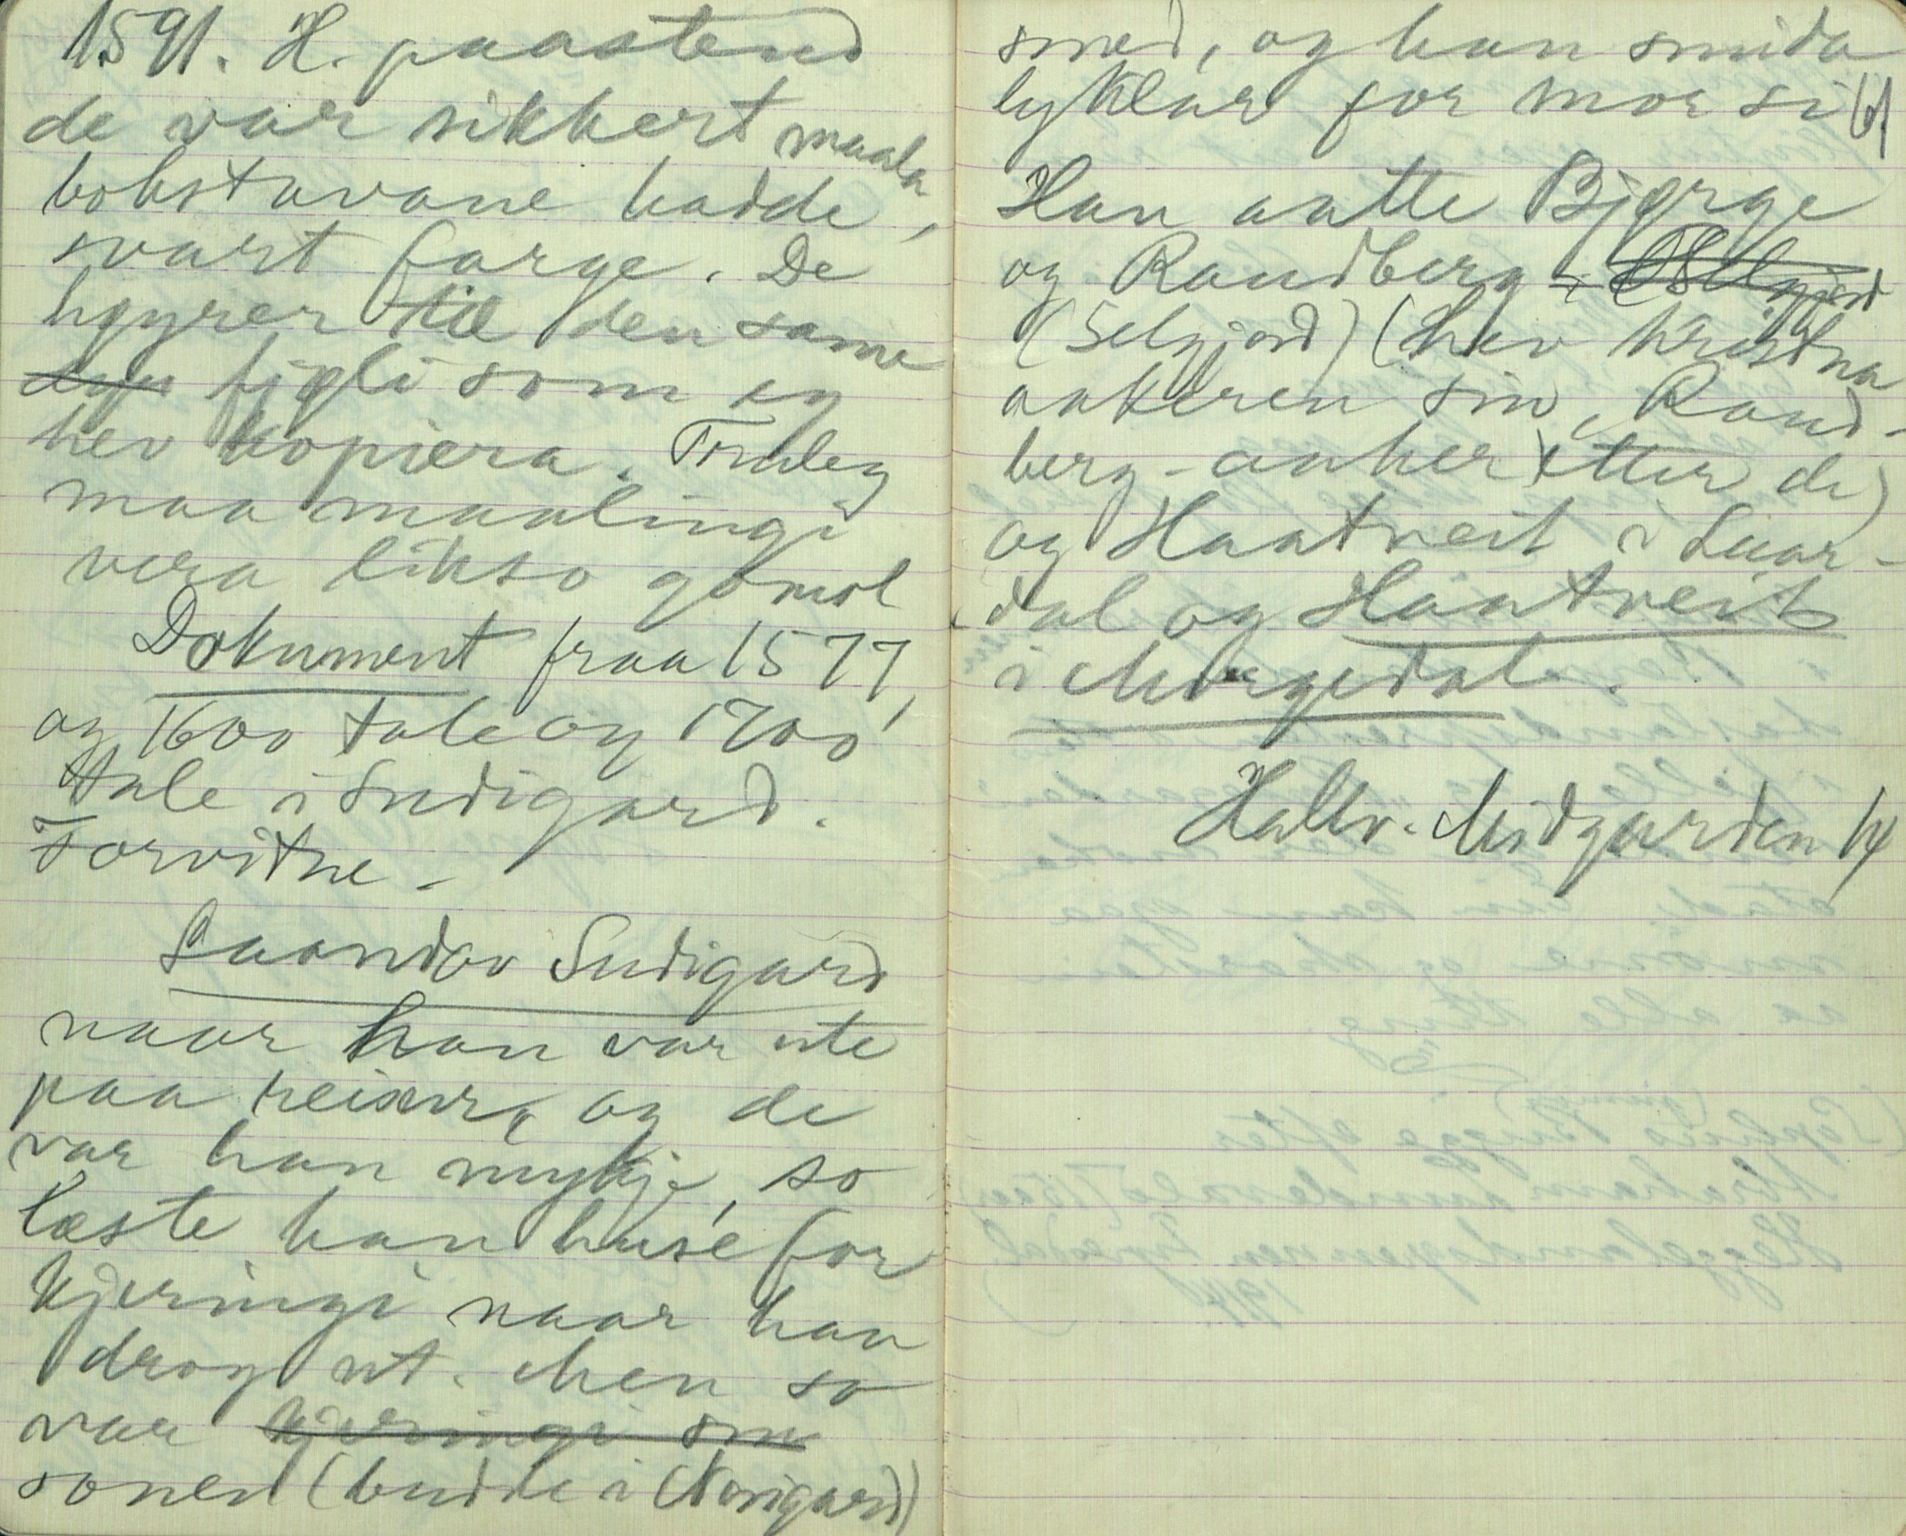 1591. H. paastend
de var sikkert maala,
bokstavane hadde
svart farge. De
høyrer til den same
fjøli som eg
hev kopiera. Truleg
maa maalingi
vera likso gomol
Dokument fraa 1577,
og 1600 tale og 1700
tale i Sudigard.
Forvitne -
Paandov Sudigard
naar han var ute
paa reisur, og de
var han mykje, so
læste han huse for
kjeringi naar han
drog ut. Men so
var kjeringi sm
sonen (budde i Norigard)
smed, og han smida
lyklar for mor si (!)
Han aatte Bjørge
og Randberg i Selgjord
(Selgjord) (hev kristna
aakeren sin, Rand-
berg-aaker etter de)
og Haatveit i Laar-
dal og Haatveit
i Morgedal.
Hallv. Midgarden 14